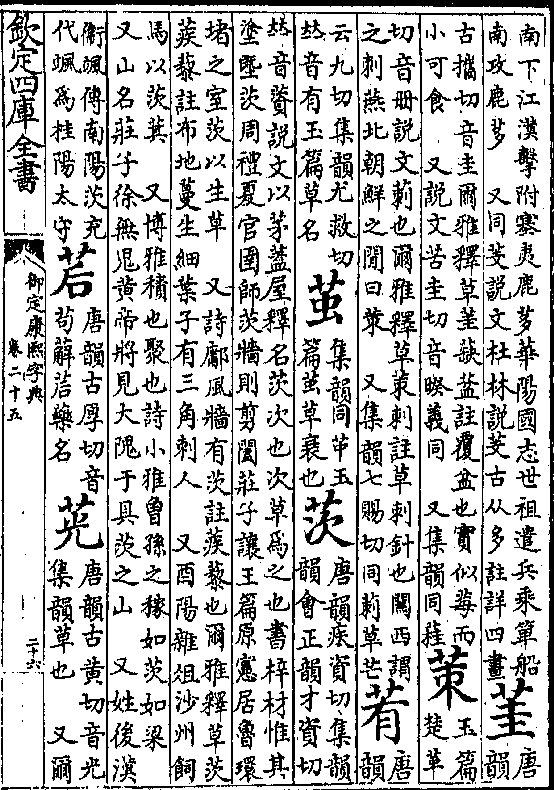 南下江漢擊附塞夷鹿茤華陽國志世祖遣兵乘簞船
南攻鹿茤　又同芰説文杜林説芰古从多註詳四畫
茥
唐
韻
古攜切音圭爾雅釋草茥蒛葐註覆盆也實似莓而
小可食　又説文苦圭切音睽義同　又集韻同䕸
茦
玉篇
楚革
切音册説文莿也爾雅釋草茦刺註草刺針也關西謂
之刺燕北朝鮮之間曰茦　又集韻七賜切同莿草芒
䒴
唐
韻
云九切集韻尤救切
𠀤音有玉篇草名
茧
集韻同芇玉
篇茧草衰也
茨
唐韻疾資切集韻
韻會正韻才資切
𠀤音薋説文以茅蓋屋釋名茨次也次草爲之也書梓材惟其
塗塈茨周禮夏官圉師茨牆則剪闔莊子讓王篇原憲居魯環
堵之室茨以生草　又詩鄘風牆有茨註蒺藜也爾雅釋草茨
蒺藜註布地蔓生細葉子有三角刺人　又酉陽雜俎沙州飼
馬以茨萁　又博雅積也聚也詩小雅魯孫之稼如茨如梁
又山名莊子徐無鬼黃帝將見大隗于具茨之山　又姓後漢
衞颯傳南陽茨充
代颯爲桂陽太守
茩
唐韻古厚切音
苟薢茩藥名
茪
唐韻古黄切音光
集韻草也　又爾
欽定四庫全書
御定康熙字典
卷二十五
二十六